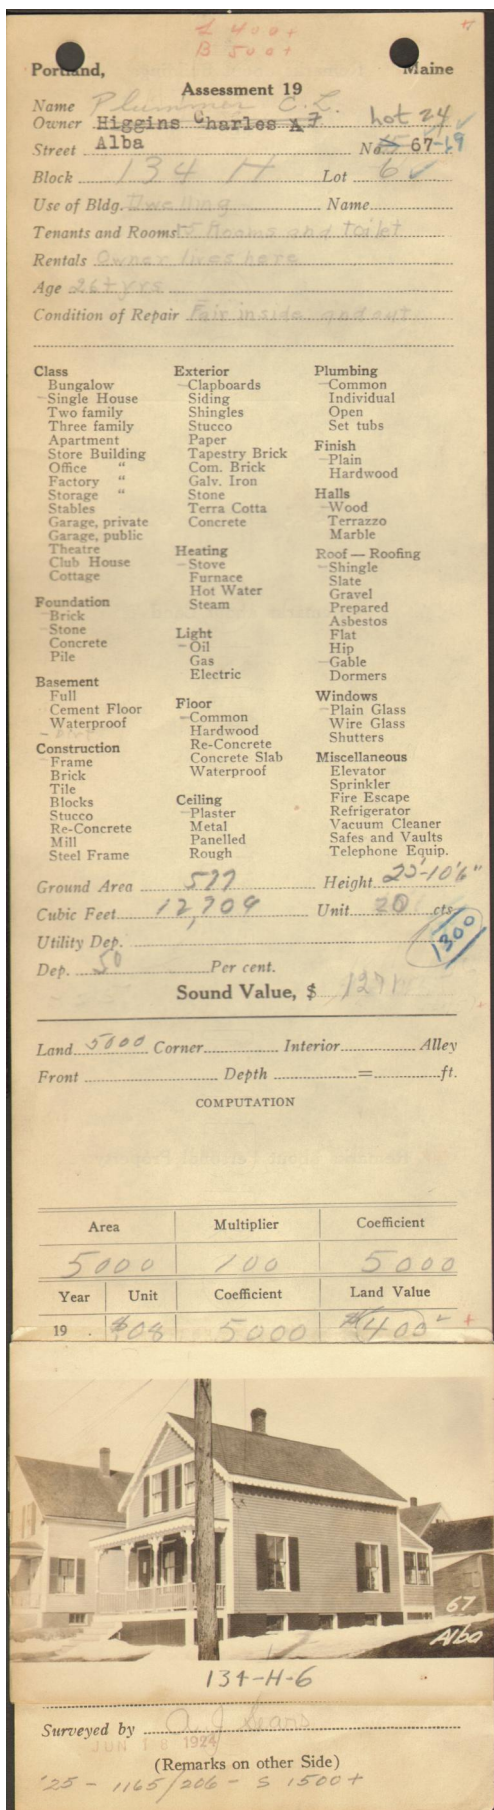 L 400+
B 500+
Portland, Maine
Assessment 19
Name Plummer C. L.
Owner Higgins Charles A Lot 24
Street Alba No. 67-19
Block 134 H Lot 6
Use of Bldg. Dwelling Name
Tenants and Rooms 5 Rooms and toilet
Rentals Owner lives here
Age 26+ yrs
Condition of Repair Fair inside and out
Class
Bungalow
Single House
Two family
Three family
Apartment
Store Building
Office "
Factory "
Storage "
Stables
Garage, private
Garage, public
Theatre
Club House
Cottage
Foundation
Brick
Stone
Concrete
Pile
Basement
Full
Cement Floor
Waterproof
Construction
Frame
Brick
Tile
Blocks
Stucco
Re-Concrete
Mill
Steel Frame
Exterior
Clapboards
Siding
Shingles
Stucco
Paper
Tapestry Brick
Com. Brick
Galv. Iron
Stone
Terra Cotta
Concrete
Heating
Stove
Furnace
Hot Water
Steam
Light
Oil
Gas
Electric
Floor
Common
Hardwood
Re-Concrete
Concrete Slab
Waterproof
Ceiling
Plaster
Metal
Panelled
Rough
Plumbing
Common
Individual
Open
Set tubs
Finish
Plain
Hardwood
Halls
Wood
Terrazzo
Marble
Roof — Roofing
Shingle
Slate
Gravel
Prepared
Asbestos
Flat
Hip
Gable
Dormers
Windows
Plain Glass
Wire Glass
Shutters
Miscellaneous
Elevator
Sprinkler
Fire Escape
Refrigerator
Vacuum Cleaner
Safes and Vaults
Telephone Equip.
Ground Area 577 Height 22'-10'6"
Cubic Feet 12,704 Unit 20 cts.
1300
Utility Dep.
Dep. 50 Per cent.
Sound Value, $ 127
Land 5000 Corner Interior Alley
Front Depth = ft.
COMPUTATION
Area Multiplier Coefficient
5000 100 5000
Year Unit Coefficient Land Value
19 $.08 5000 $400
67
Alba
134-H-6
Surveyed by A J Sears
JUN 18 1924
(Remarks on other Side)
'25 - 1165/206 - S 1500+